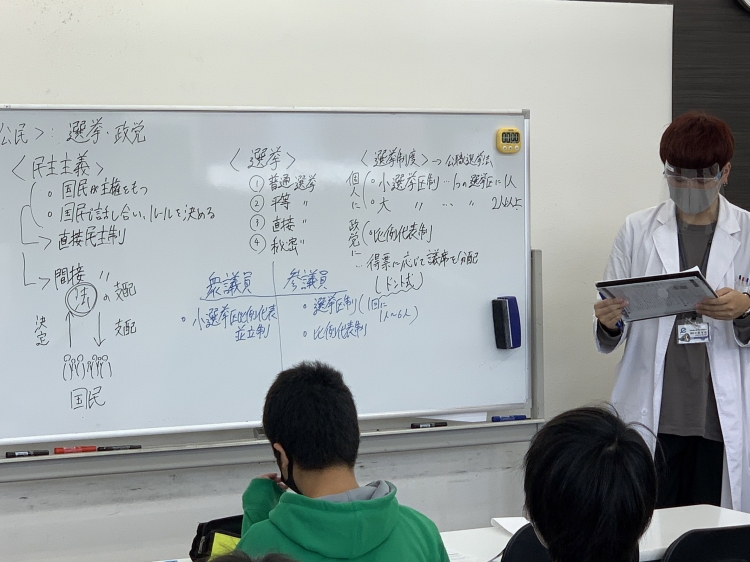 公民＞: 選挙・政党
＜民主主義＞
◦国民が主権をもつ
◦国民で話し合い、ルールを決める
→直接民主制
→間接 〃
法の支配
決定
支配
国民
＜選挙＞
① 普通選挙
② 平等 〃
③ 直接 〃
④ 秘密 〃
＜選挙制度＞→公職選挙法
個人に
◦小選挙区制…1つの選挙区に1人
◦大 〃 … 〃 2人以上
政党に
◦比例代表制
…得票に応じて議席を分配
(ドント式)
衆議員 参議員
◦小選挙区比例代表
並立制
◦選挙区制(1回に
1人〜6人)
◦比例代表制